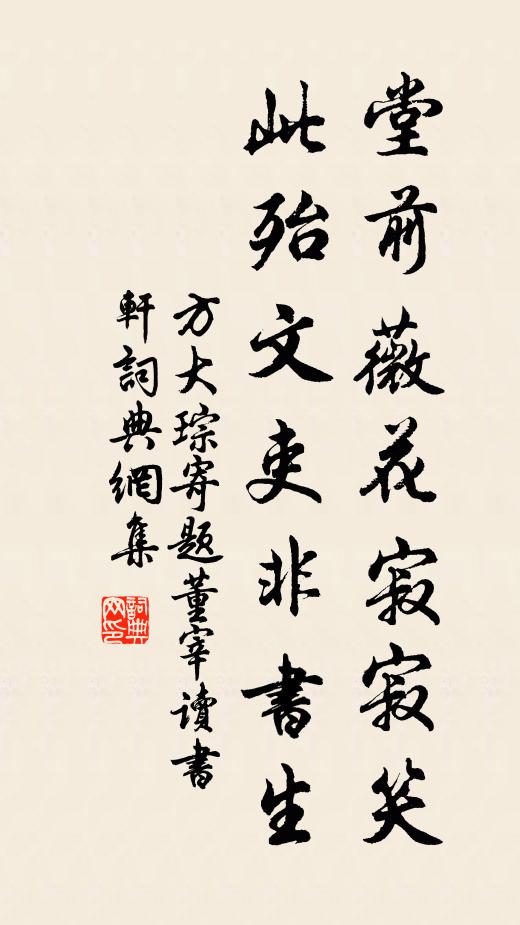 堂前薇花寂寂笑
此殆文吏非書生
方大琮寄題董宰讀書
軒詞典網集
詞典
网印